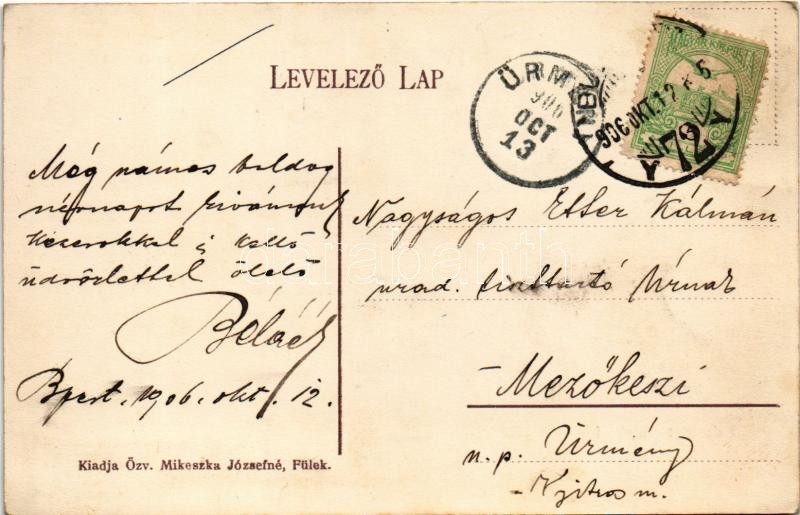 LEVELEZŐ LAP
ÜRMÉNY
906
OCT
13
906 OKT. 12
72
Még számos boldog
névnapot kivánunk
üdvözlettel ölelő
Béláék
Bpest. 1906. okt. 12.
Nagyságos Etter Kálmán
urad. tiszttartó Úrnak
Mezőkeszi
u. p. Ürmény
Nyitra m.
Kiadja Özv. Mikeszka Józsefné, Fülek.
darabanth